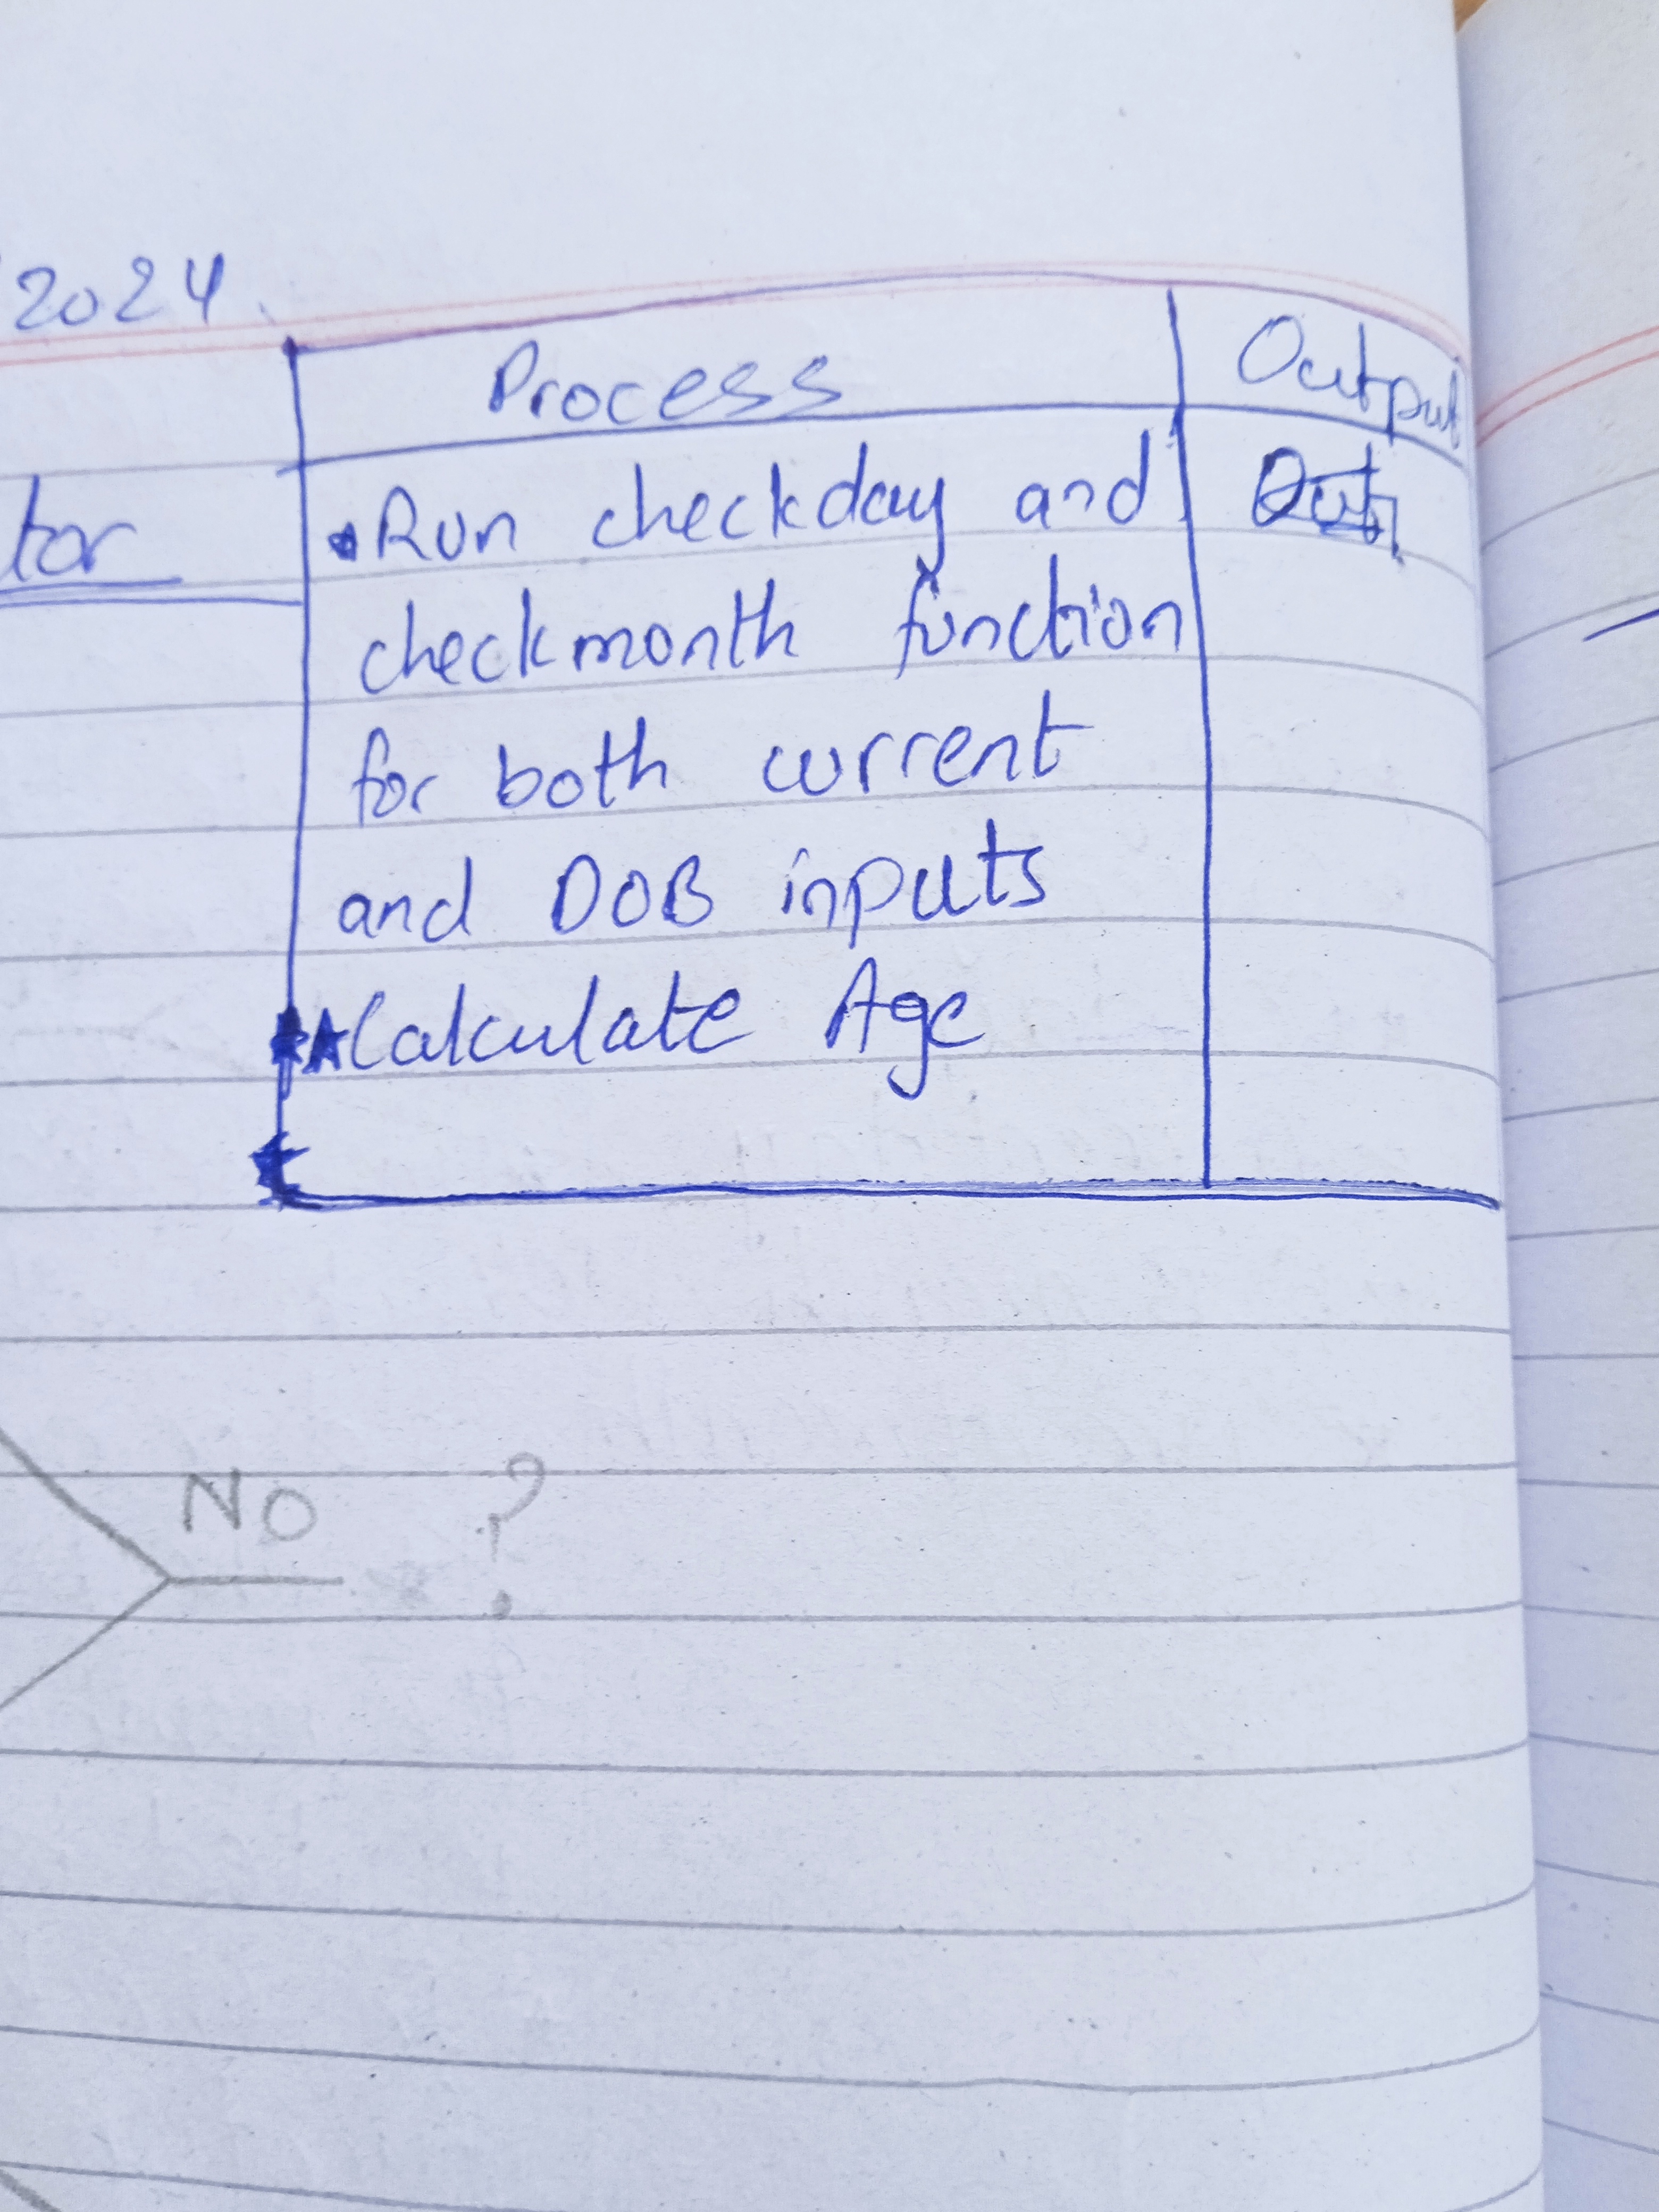 2024.
Process
Output
tor
• Run checkday and
checkmonth function
for both current
and DOB inputs
★ Calculate Age
NO ?